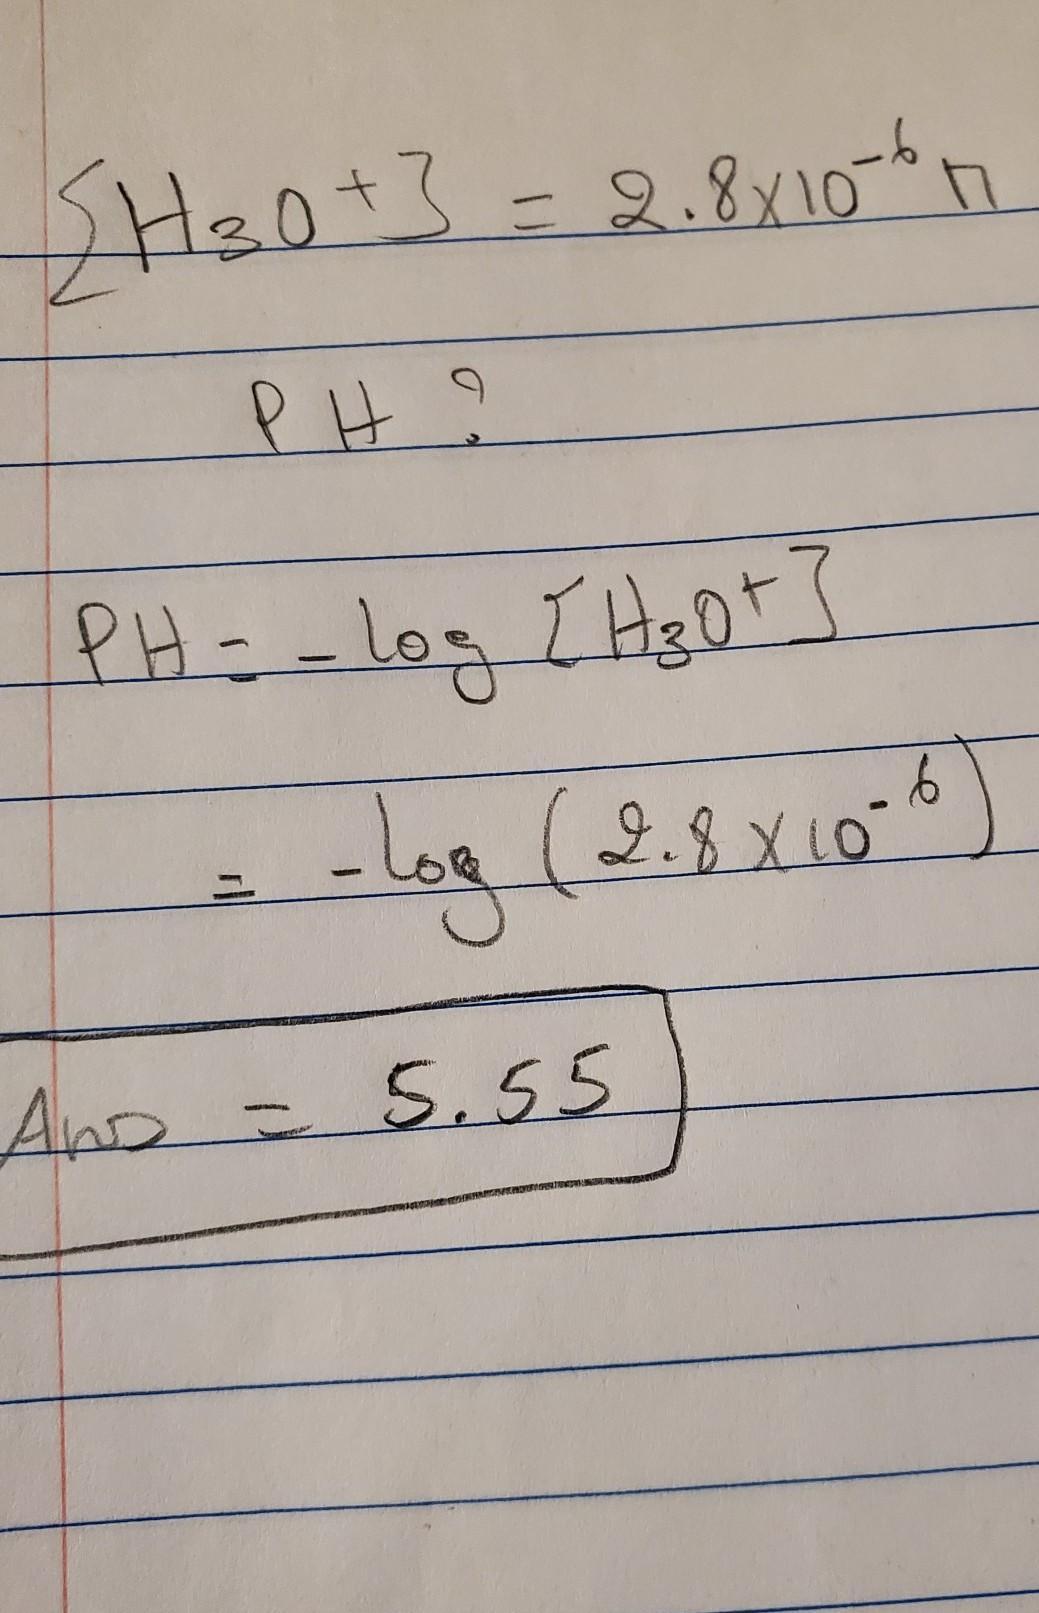 [H3O+] = 2.8x10-6 M
PH?
PH = - log [H3O+]
= -log (2.8 x 10-6)
Ans = 5.55